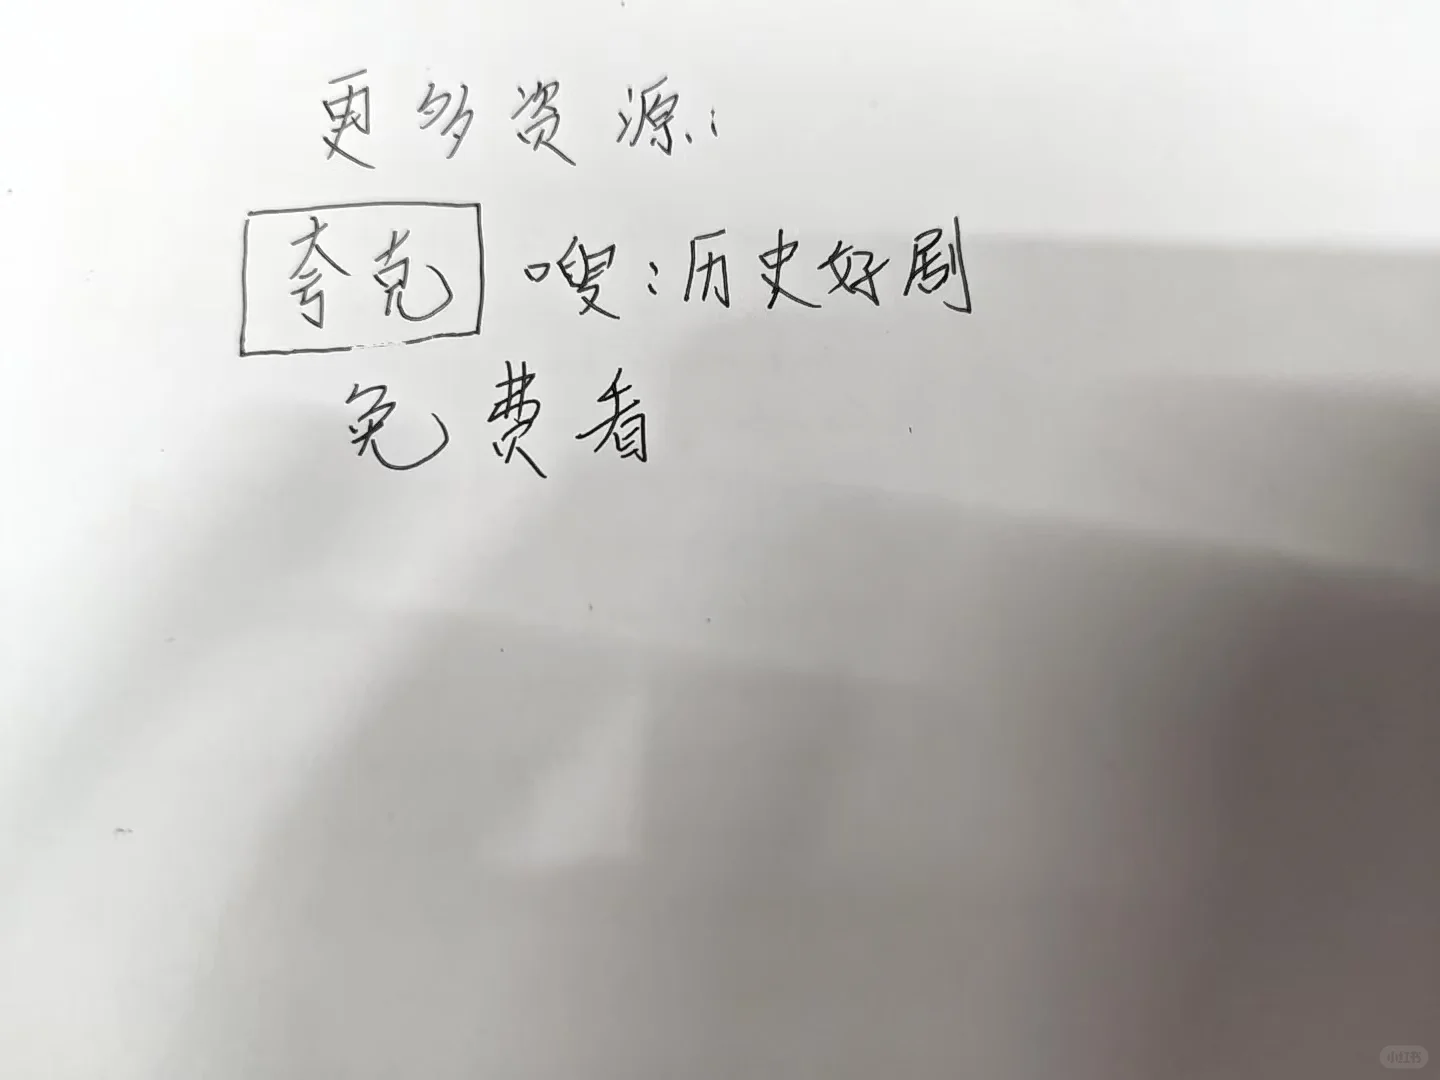 更多资源：
夸克 嗖：历史好剧
免费看
小红书